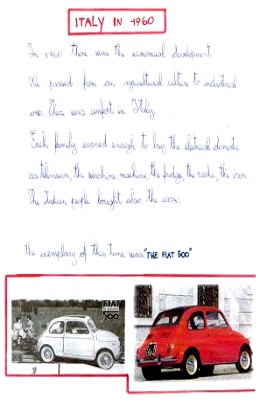 ITALY IN 1960
In 1960 there were the economical development
We passed from an agricultural culture to industrial
and there was confort in Italy.
Each family earned enough to buy the eletrical domestic
as television, the waschine machine, the fridge, the radio, the iron.
The Italian people bought also the cars:
the exemplary of this time was "THE FIAT 500"
FIAT
500